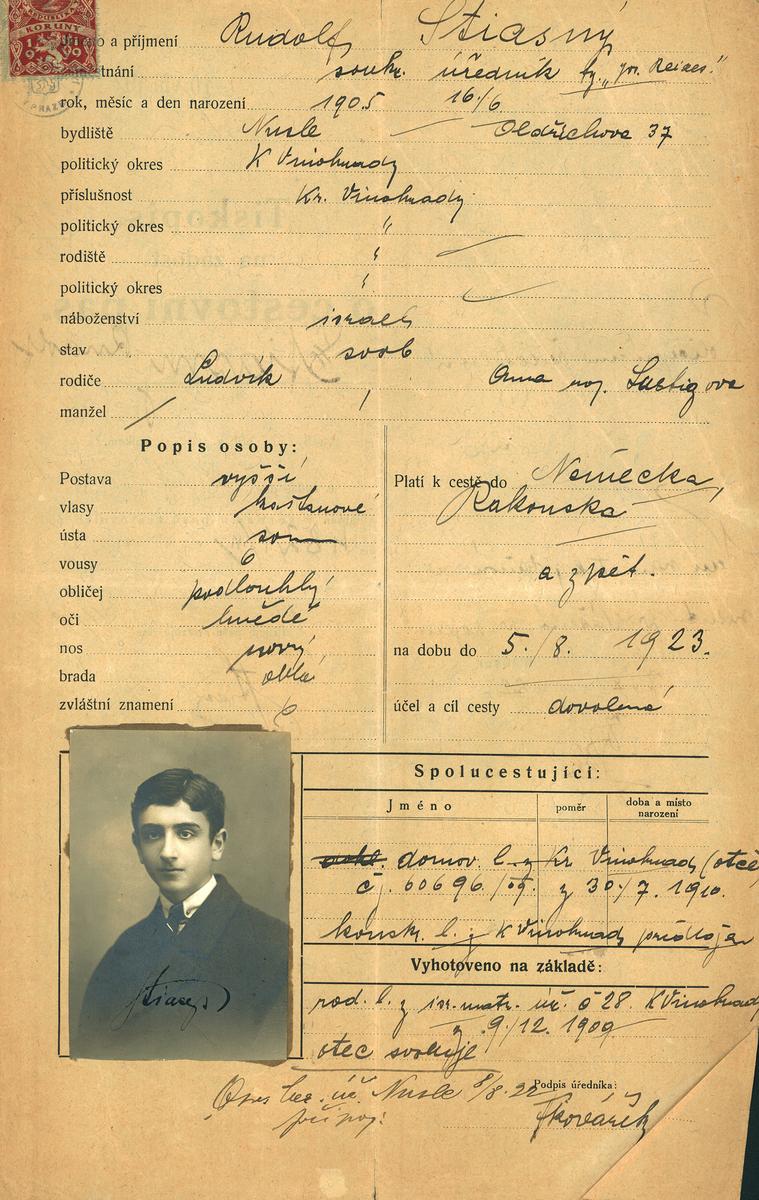 KORUNY
1919
PRAZE
a příjmení Rudolf Stiasný
soukr. úředník fy.
rok, měsíc a den narození 1905 16/6
bydliště Nusle Oldřichova 37
politický okres K Vinohrady
příslušnost Kr. Vinohrady
politický okres "
rodiště "
politický okres "
náboženství israel
stav svob
rodiče Ludvík Anna roz. Lustigova
manžel
Popis osoby:
Postava vyšší
vlasy kaštanové
ústa
vousy
obličej podlouhlý
oči hnědé
nos rovný
brada oblá
zvláštní znamení
Platí k cestě do Německa,
Rakouska
a zpět.
na dobu do 5./8. 1923.
účel a cíl cesty dovolená
Spolucestující:
Jméno
poměr
doba a místo
narození
domov. l. z Kr Vinohrad (otce
čj. 60696/ z 30./7. 1910.
konskr. l. z K Vinohrad
Vyhotoveno na základě:
rod. l. z isr. matr. úř. č 28. K Vinohrad
z 9./12. 1909
otec svoluje
Stiasný
Nusle 8/8. 22
Podpis úředníka: